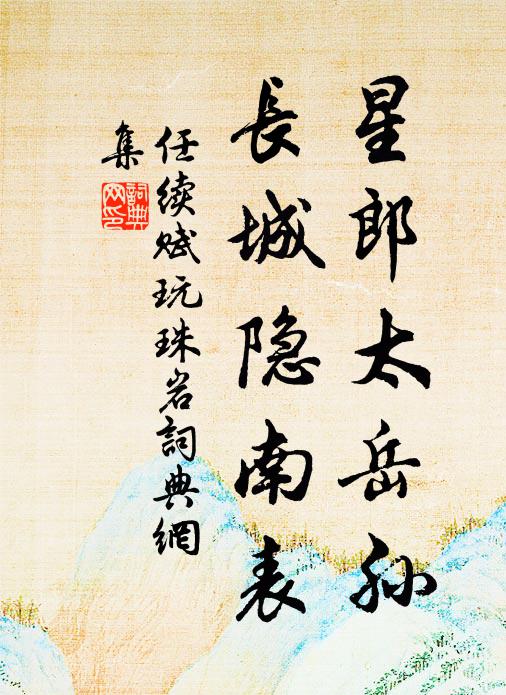 星郎太岳孙
長城隐南表
任续赋玩珠岩詞典網
集
詞典
网印